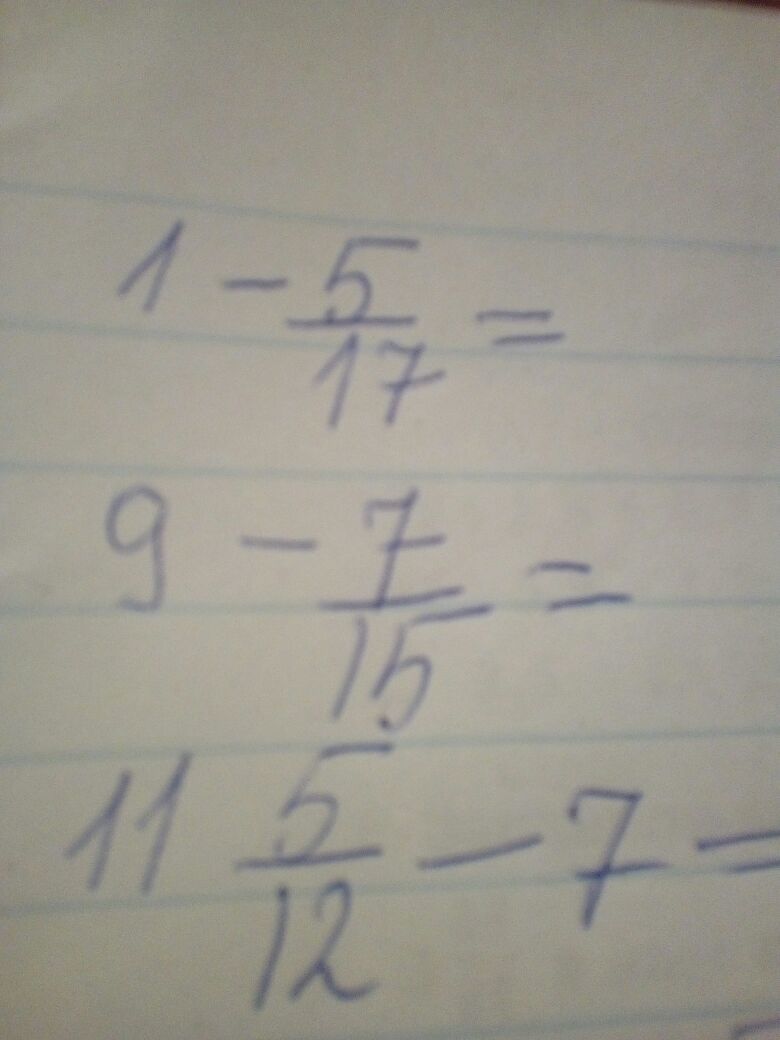 1 - 5/17 =
9 - 7/15 =
11 5/12 - 7 =